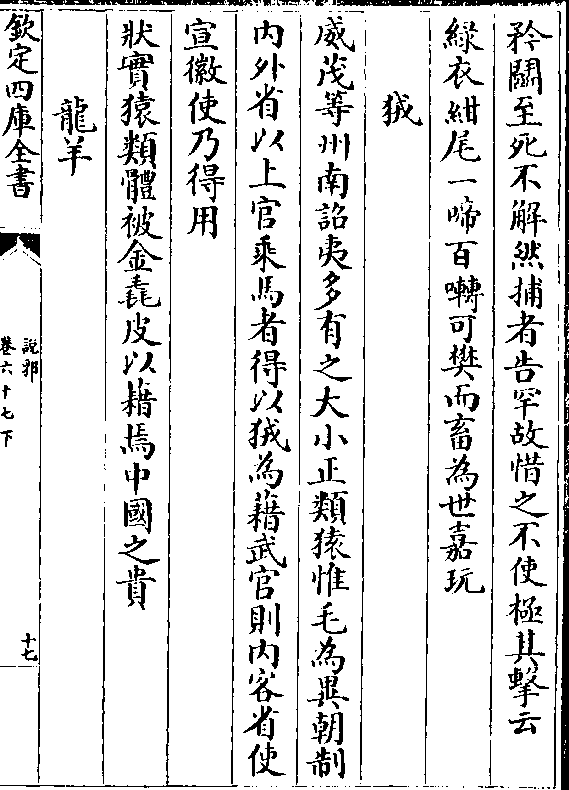 矜鬬至死不解然捕者告罕故惜之不使極其擊云
綠衣紺尾一啼百囀可樊而畜為世嘉玩
狨
威茂等州南詔夷多有之大小正類猿惟毛為異朝制
内外省以上官乘馬者得以狨為藉武官則内客省使
宣徽使乃得用
狀實猿類體被金毳皮以藉焉中國之貴
龍羊
欽定四庫全書
說郛
卷六十七下
十七